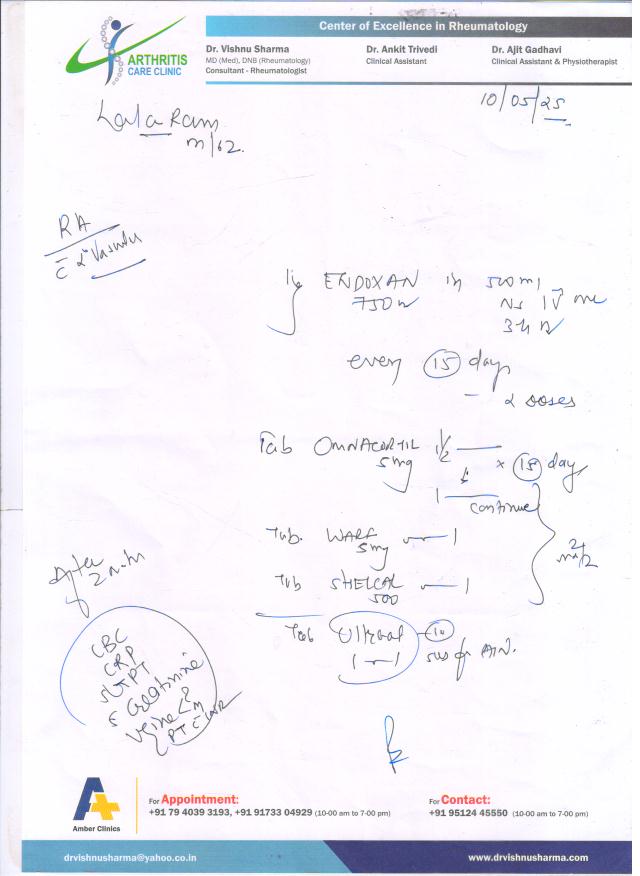 Center of Excellence in Rheumatology
ARTHRITIS
CARE CLINIC
Dr. Vishnu Sharma
MD (Med), DNB (Rheumatology)
Consultant - Rheumatologist
Dr. Ankit Trivedi
Clinical Assistant
Dr. Ajit Gadhavi
Clinical Assistant & Physiotherapist
10/05/25
Lala Ram
m/62.
RA
ENDOXAN in 500 ml
750 NS IV
3
every 15 days
2 doses
Tab OMNACORTIL 1/2
5mg × 15 days
1
continue
Tub. WARF 1
5mg
Tub SHELCAL 1
500
2
Tab 10
1 1
After
2 
CBC
CRP
SGPT
S Creatinine
Urine R/M
PT INR
Amber Clinics
For Appointment:
+91 79 4039 3193, +91 91733 04929 (10-00 am to 7-00 pm)
For Contact:
+91 95124 45550 (10-00 am to 7-00 pm)
drvishnusharma@yahoo.co.in
www.drvishnusharma.com